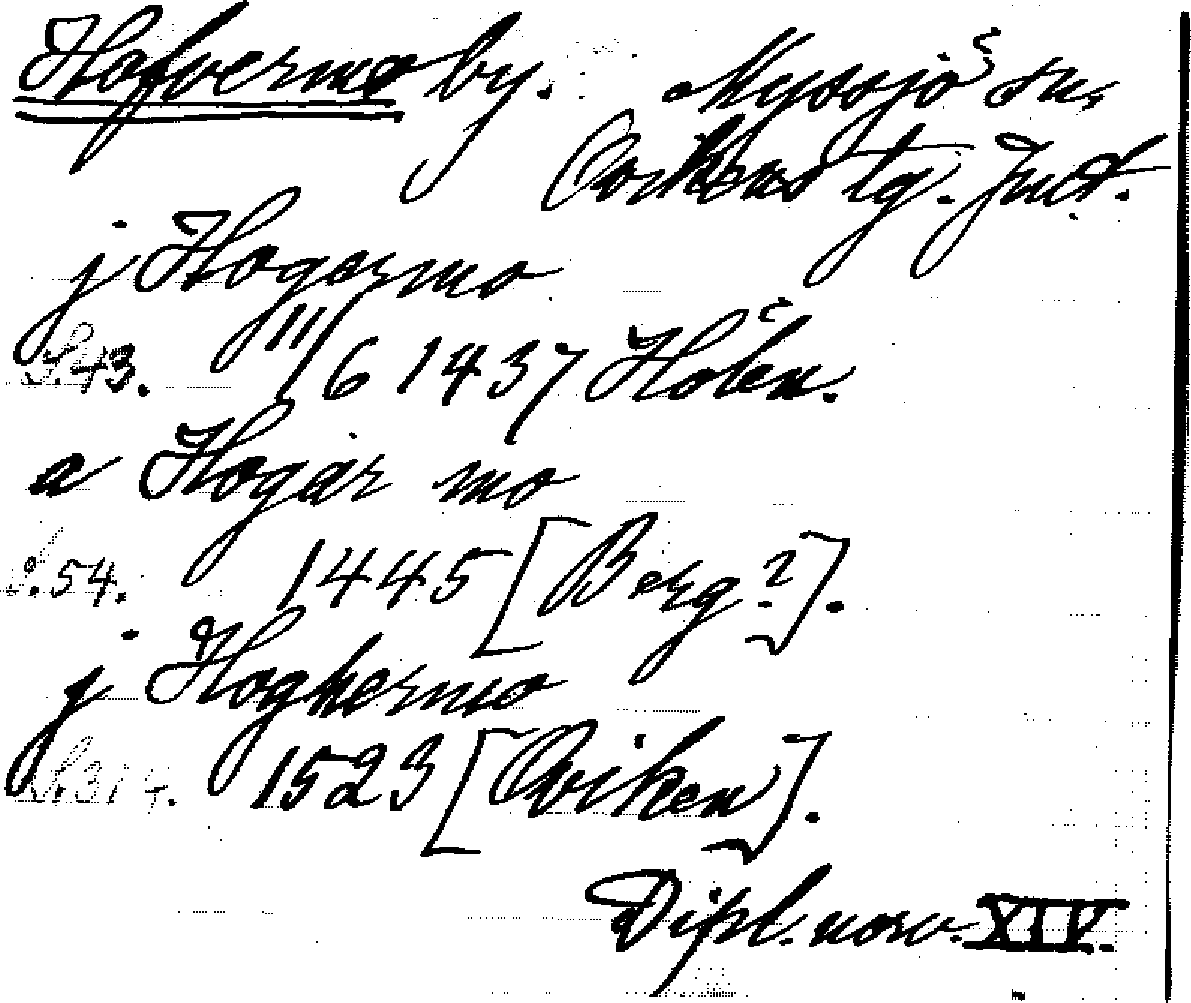 Hofvermo by. Myssjö sn,
Ovikens tg. Jmtl.
j Hogermo
S. 43. 11/6 1437 Hofen.
a Hogär mo
S. 54. 1445 [Berg?].
j Hoghermo
S. 314. 1523 [Oviken].
Dipl. norv. XIV.